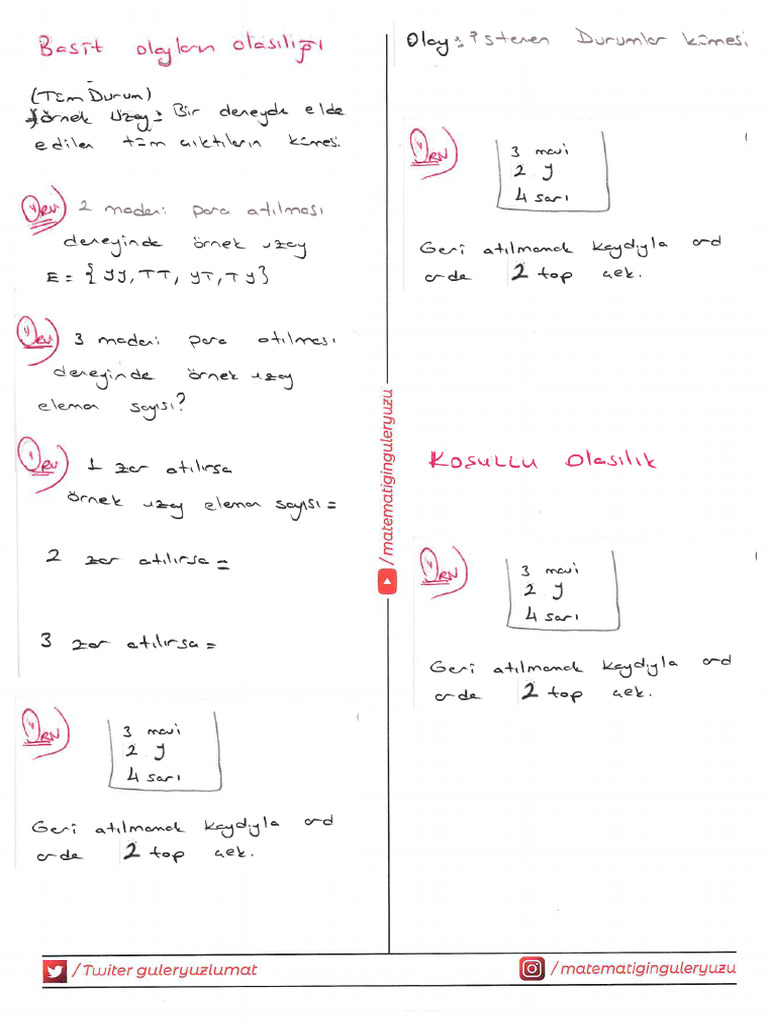 Basit olayların olasılığı
(Tüm Durum)
Örnek Uzay: Bir deneyde elde
edilen tüm çıktıların kümesi.
Örn
2 madeni para atılması
deneyinde örnek uzay
E = {YY, TT, YT, TY}
Örn
3 madeni para atılması
deneyinde örnek uzay
eleman sayısı?
Örn
1 zar atılırsa
örnek uzay eleman sayısı =
2 zar atılırsa =
3 zar atılırsa =
Örn
3 mavi
2 y
4 sarı
Geri atılmamak kaydıyla ard
arda 2 top çek.
Olay: istenen Durumlar kümesi
Örn
3 mavi
2 y
4 sarı
Geri atılmamak kaydıyla ard
arda 2 top çek.
KOŞULLU Olasılık
Örn
3 mavi
2 y
4 sarı
Geri atılmamak kaydıyla ard
arda 2 top çek.
/matematiginguleryuzu
/Twiter guleryuzlumat
/matematiginguleryuzu